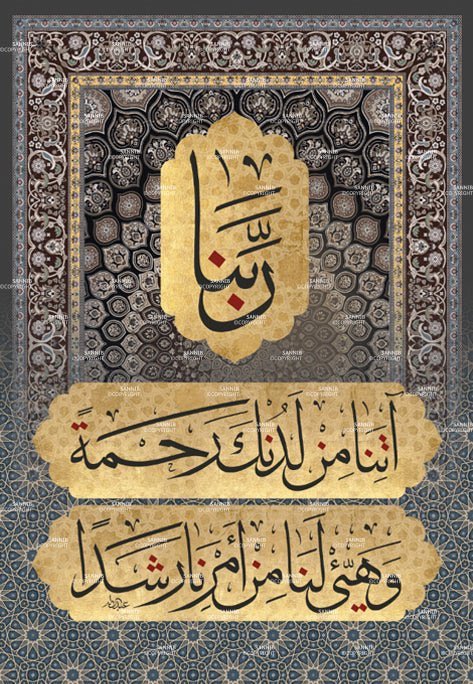 رَبَّنَا
آتِنَا مِن لَّدُنكَ رَحْمَةً
وَهَيِّئْ لَنَا مِنْ أَمْرِنَا رَشَدًا
SANNIB
©COPYRIGHT